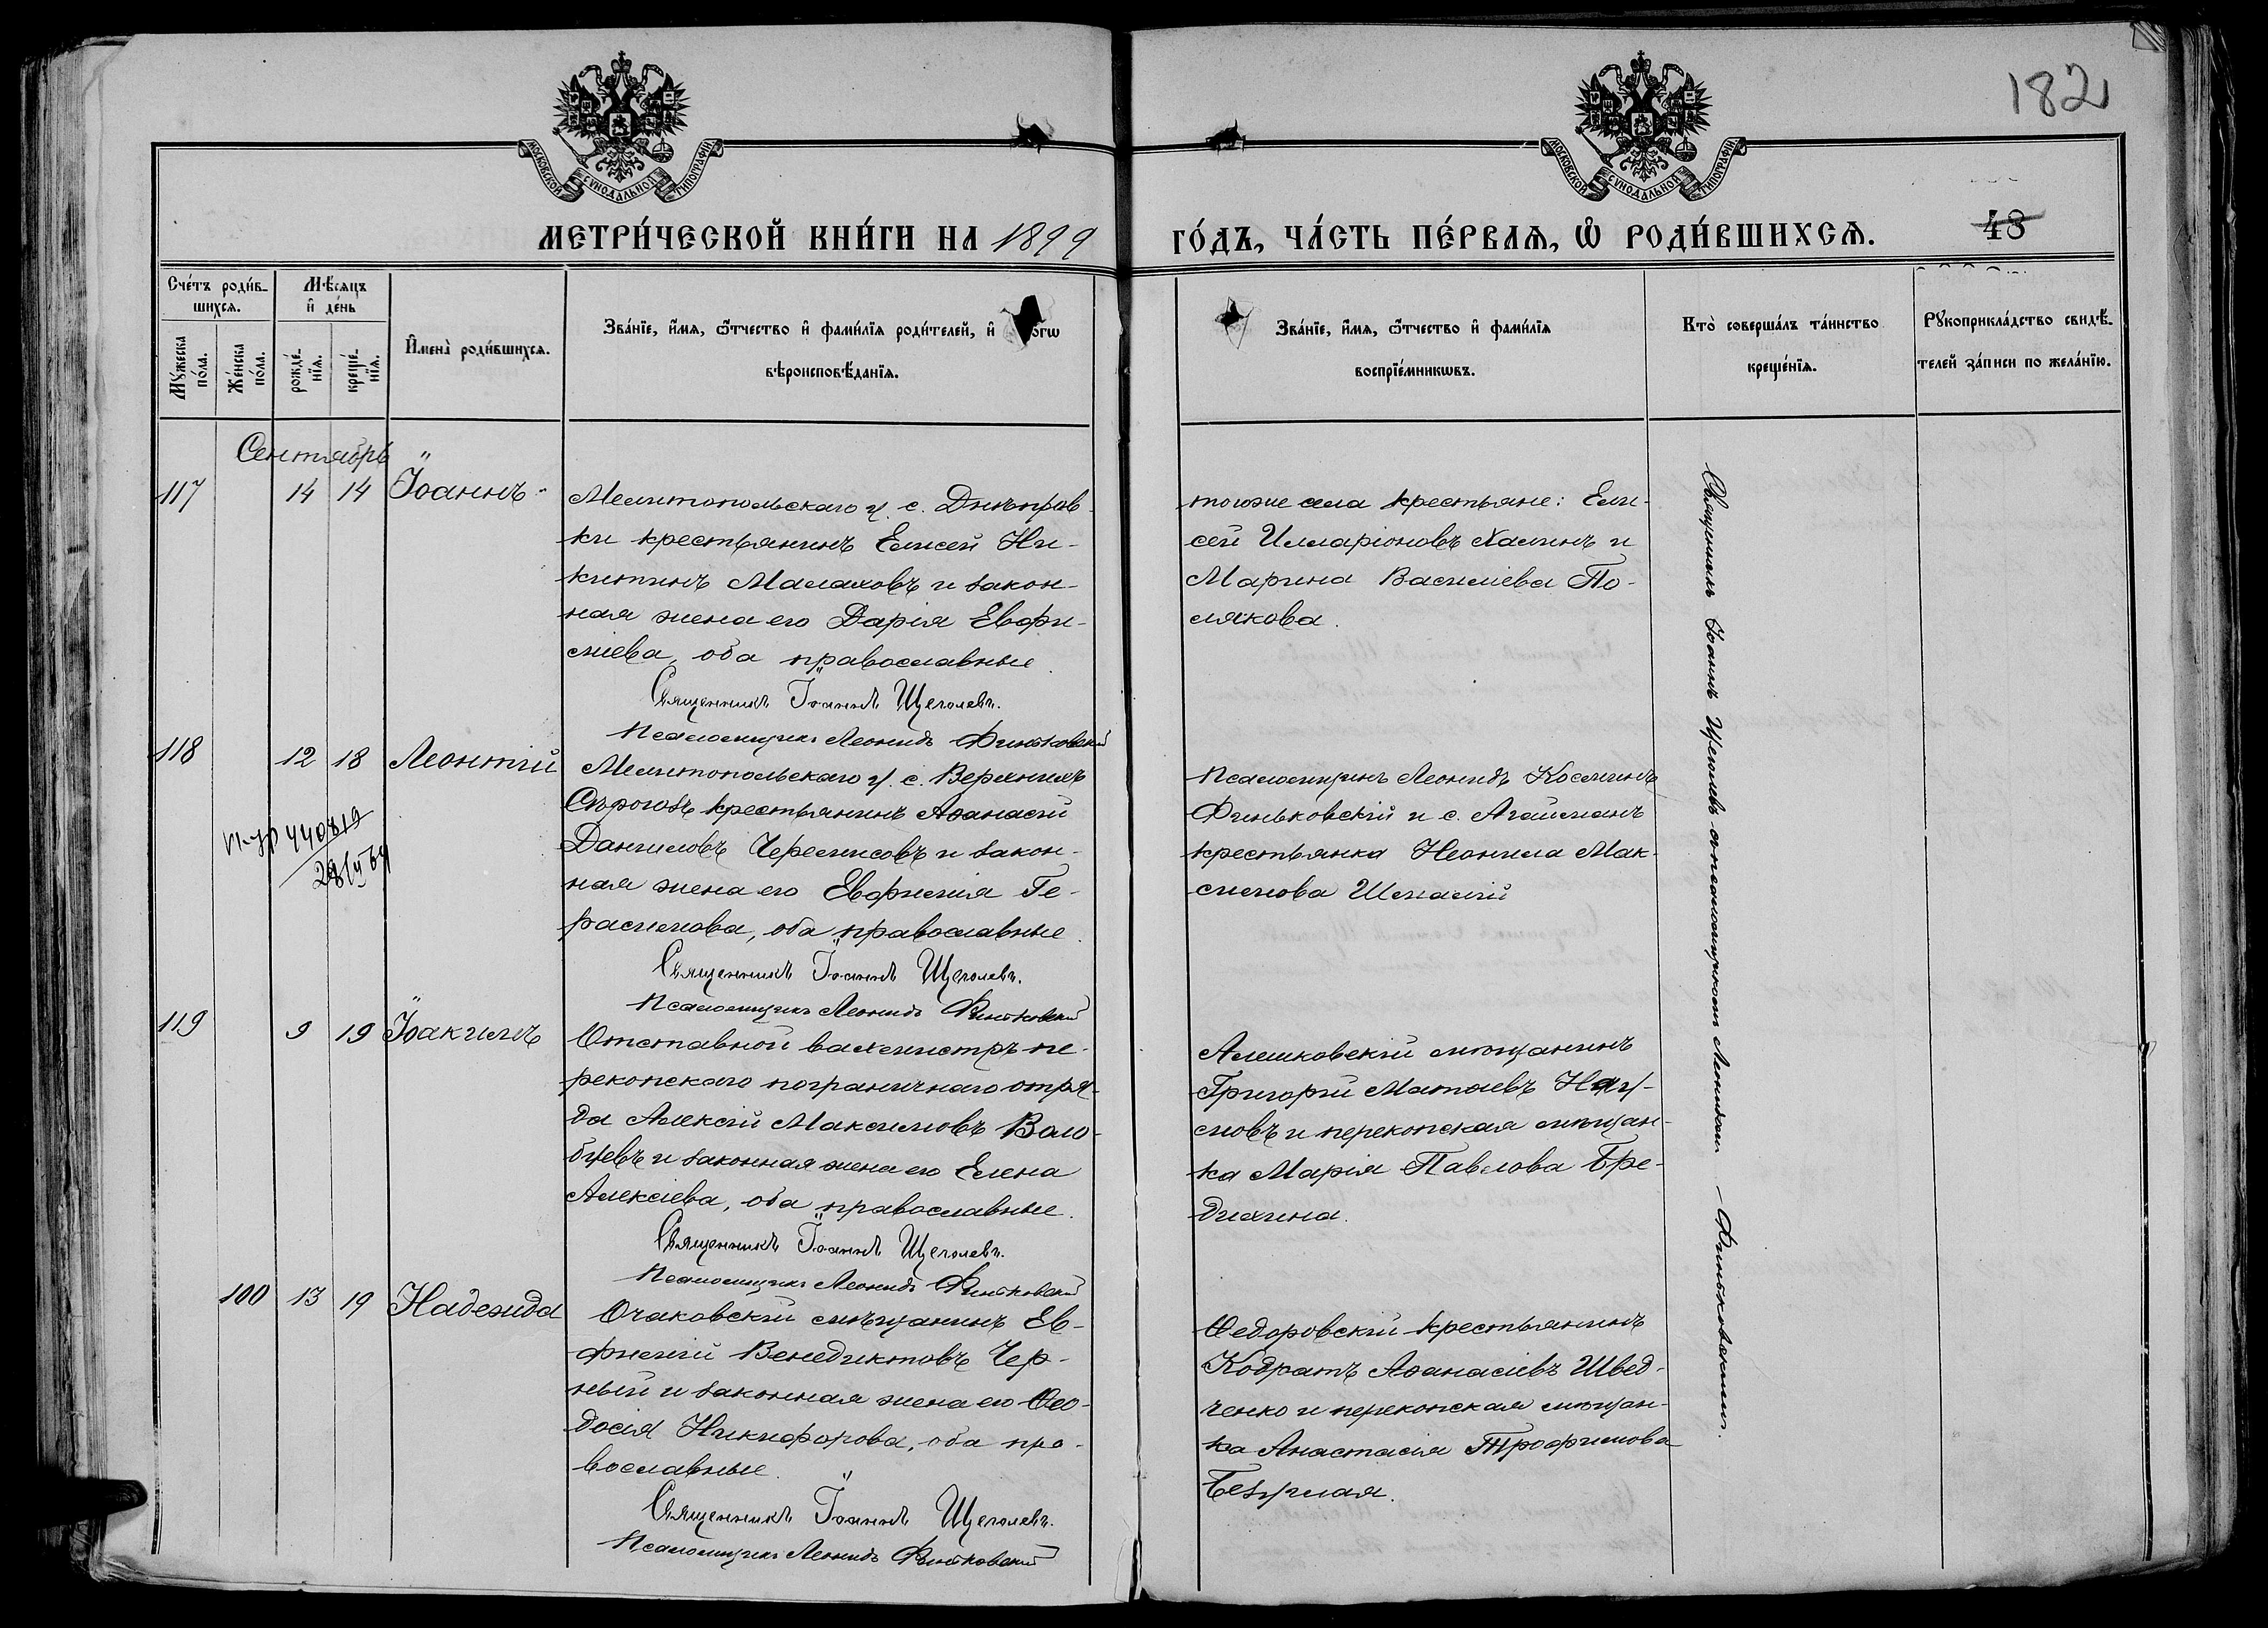 182
МОСКОВСКОЙ СѴНОДАЛЬНОЙ ТИПОГРАФІИ
МОСКОВСКОЙ СѴНОДАЛЬНОЙ ТИПОГРАФІИ
МЕТРИ́ЧЕСКОЙ КНИ́ГИ НА 1899
ГО́ДЪ, ЧА́СТЬ ПЕ́РВАѦ, Ѡ҆ РОДИ́ВШИХСѦ.
48
Сче́тъ роди́в-
шихсѧ.
Мѣ́сѧцъ
и҆ де́нь
Мꙋ́жеска
по́ла.
Же́нска
по́ла.
рожде́-
нїѧ.
креще́-
нїѧ.
И҆мена̀ роди́вшихсѧ.
Зва́нїе, и҆́мѧ, ѻ҆́тчество и҆ фами́лїѧ роди́телей, и҆ огѡ
вѣроисповѣ́данїѧ.
Зва́нїе, и҆́мѧ, ѻ҆́тчество и҆ фами́лїѧ
воспрїе́мникѡвъ.
Кто̀ соверша́лъ та́инство
креще́нїѧ.
Рꙋкоприкла́дство свидѣ́-
телей за́писи по жела́нїю.
Сентябрь
117 14 14 Іоаннъ
Мелитопольскаго у. с. Днѣпров-
ки крестьянинъ Елисей Ни-
китинъ Малаховъ и закон-
ная жена его Дарія Евфи-
міева, оба православные.
Священникъ Іоаннъ Щеголевъ.
Псаломщикъ Леонидъ Финьковскій
тогоже села крестьяне: Ели-
сей Илларіоновъ Халинъ и
Марина Василіева По-
лякова.
118 12 18 Леонтій
Мелитопольскаго у. с. Верхнихъ
Сѣрогозъ крестьянинъ Аѳанасій
Даниловъ Черемисовъ и закон-
ная жена его Евфимія Ге-
расимова, оба православные.
Священникъ Іоаннъ Щеголевъ.
Псаломщикъ Леонидъ Финьковскій
440819
Псаломщикъ Леонидъ Косминъ
Финьковскій и с. Агайманъ
крестьянка Неонила Мак-
симова
119 9 19 Іоакимъ
Отставной вахмистръ пе-
рекопскаго пограничнаго отря-
да Алексій Максимовъ Воло-
буевъ и законная жена его Елена
Алексіева, оба православные.
Священникъ Іоаннъ Щеголевъ.
Псаломщикъ Леонидъ Финьковскій
Алешковскій мѣщанинъ
Григорій Матвѣевъ Нау-
мовъ и перекопская мѣщан-
ка Марія Павлова Бре-
дихина.
100 13 19 Надежда
Очаковскій мѣщанинъ Ев-
фимій Венедиктовъ Чер-
ный и законная жена его Ѳео-
досія Никифорова, оба пра-
вославные.
Священникъ Іоаннъ Щеголевъ.
Псаломщикъ Леонидъ Финьковскій
Ѳедоровскій крестьянинъ
Кодратъ Аѳанасіевъ Швед-
ченко и перекопская мѣщан-
ка Анастасія Трофимова
Безумная.
Священникъ Іоаннъ Щеголевъ съ псаломщикомъ Леонидомъ Финьковскимъ.